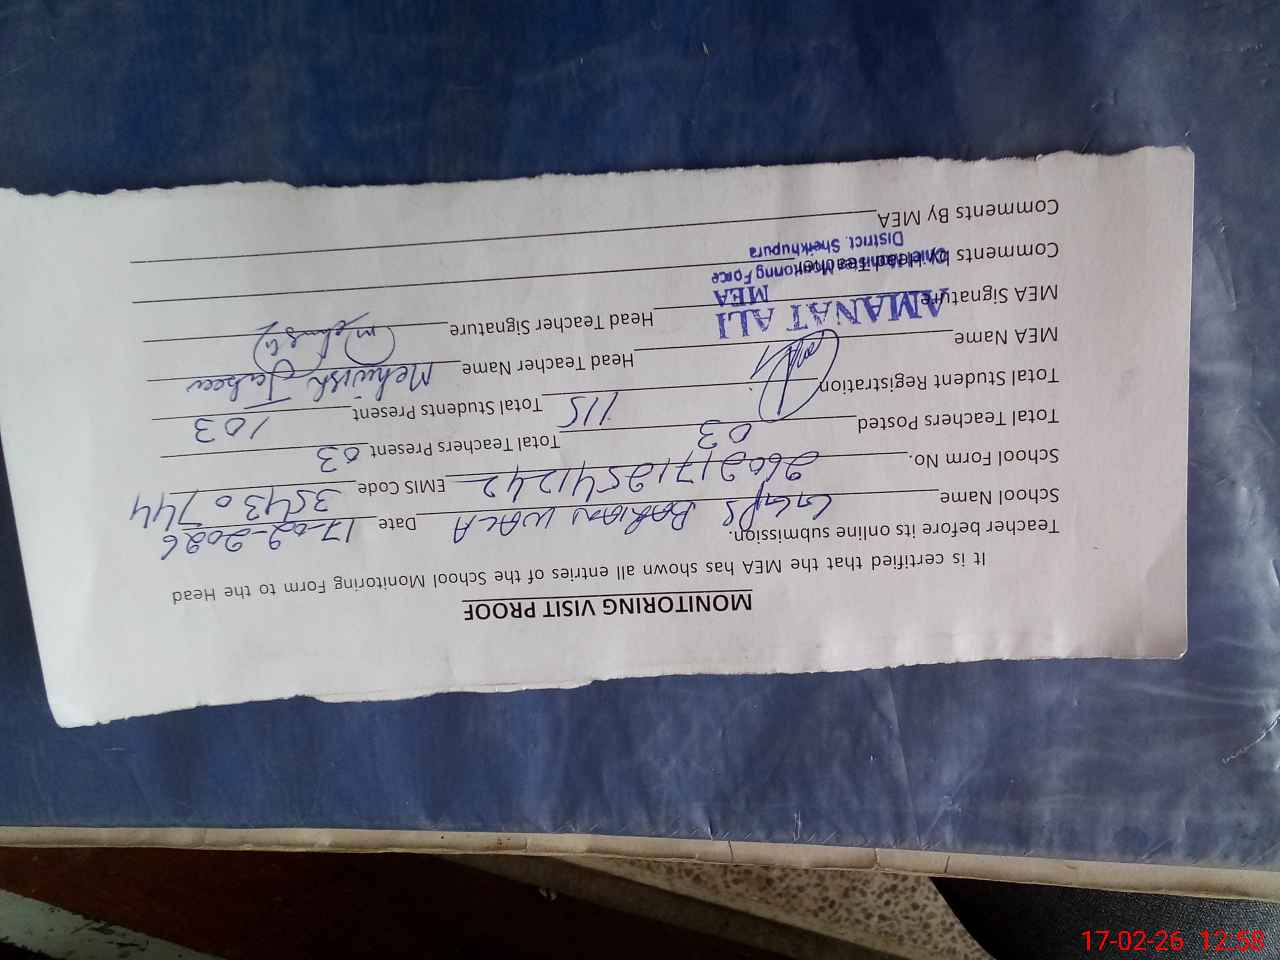 MONITORING VISIT PROOF
It is certified that the MEA has shown all entries of the School Monitoring Form to the Head
Teacher before its online submission.
School Name GGPS BARIAN WALA Date 17-02-2026
School Form No. 26021712541242 EMIS Code 35430744
Total Teachers Posted 03 Total Teachers Present 03
Total Student Registration 115 Total Students Present 103
MEA Name Head Teacher Name Mehwish
MEA Signature Head Teacher Signature
AMANAT ALI
MEA
Comments by Head Teacher
Chief Monitoring Force
District. Sheikhupura
Comments By MEA
17-02-26 12:58